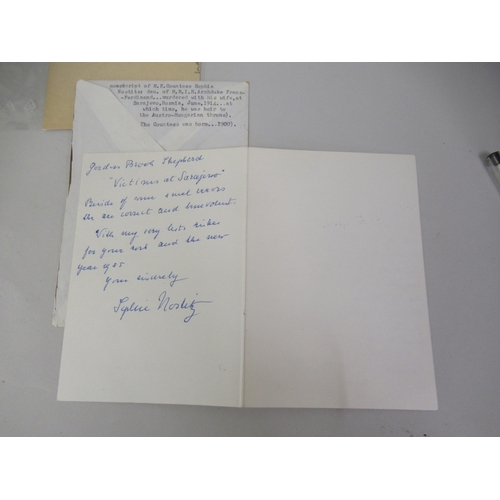 manuscript of H.H.Countess Sophie
Nostitz: dau. of H.R.I.H.Archduke Franz-
-Ferdinand...murdered with his wife,at
Sarajevo,Bosnia, June,1914...at
which time, he was heir to
the Austro-Hungarian throne).
The Countess was born...1900).
Gordon Brook Shepherd
"Victims at Sarajevo"
Beside of some small errors
the are correct and benevolent.
With my very best wishes
for your work and the new
year 1985
Yours sincerely
Sophie Nostitz